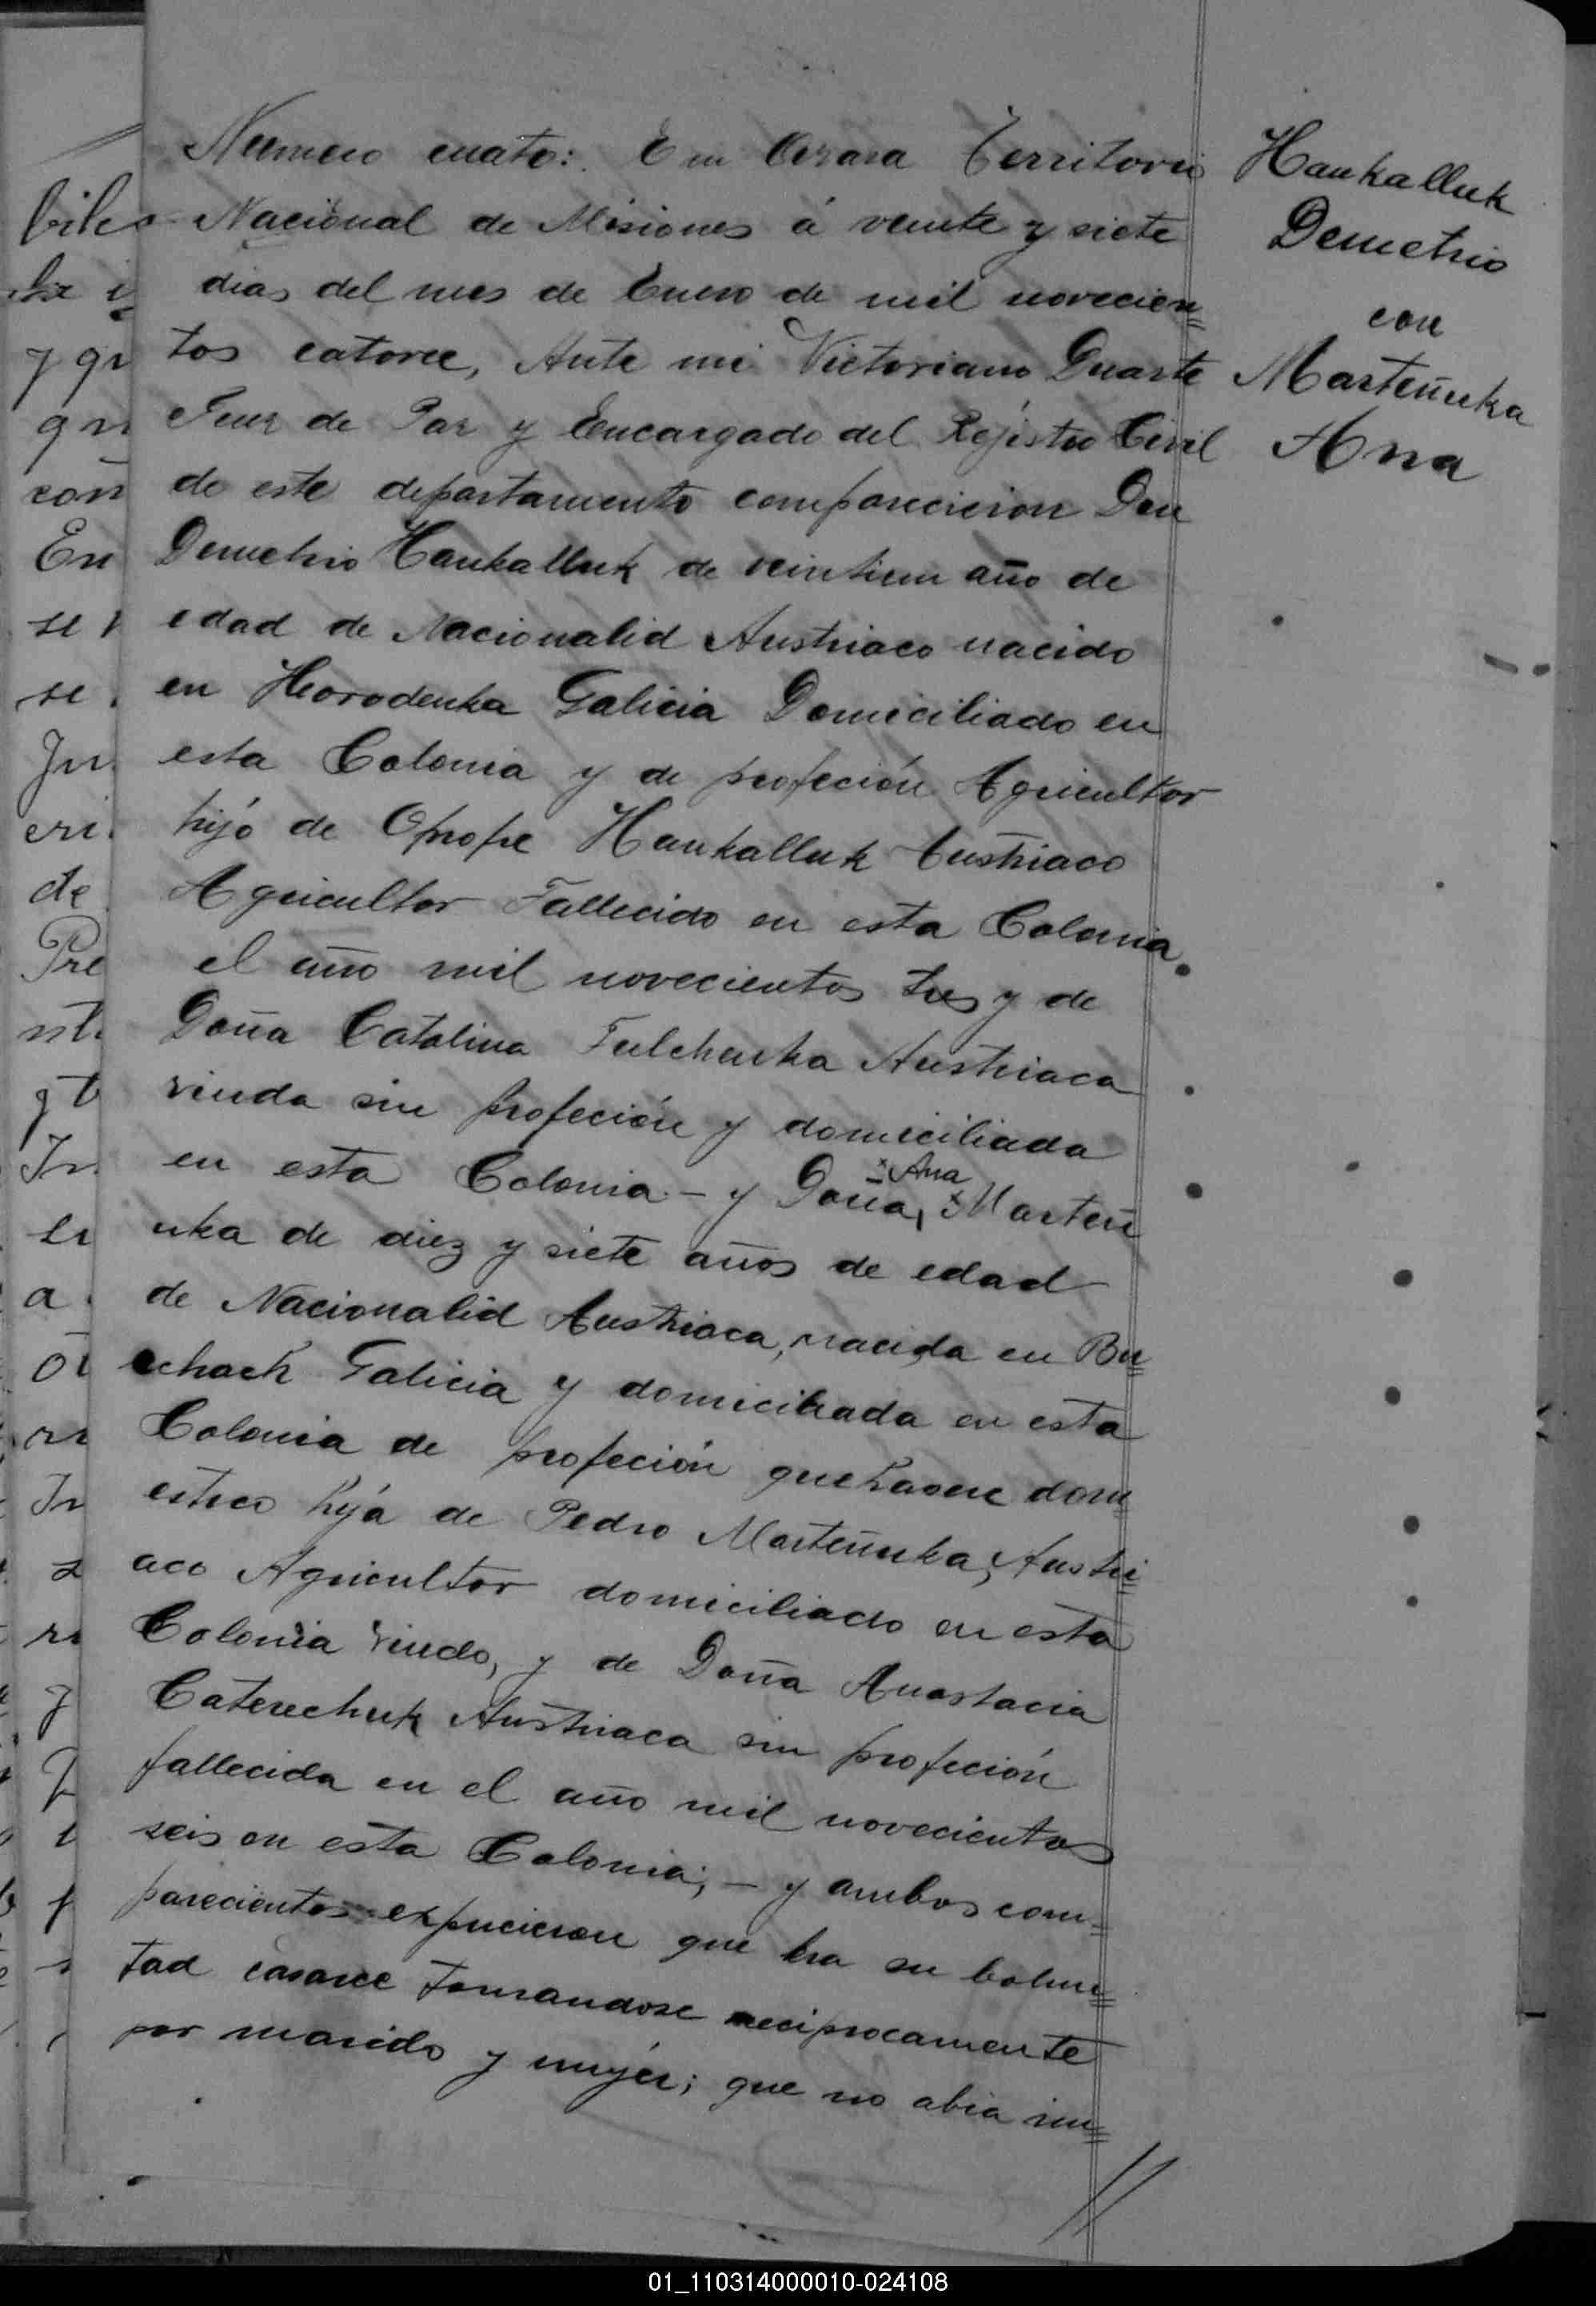 Numero cuato: En Azara Territorio
Nacional de Misiones á veinte y siete
dias del mes de Enero de mil novecien=
tos catorce, Ante mi Victoriano Duarte
Juez de Paz y Encargado del Rejistro Civil
de este departamento comparecicion Don
Demetrio Haukalluk de veintiun año de
edad de Nacionalid Austriaco nacido
en Horodenka Galicia Domiciliado en
esta Colonia y de profeción Agricultor
hijó de Haukalluk Austriaco
Agricultor Fallecido en esta Colonia
el año mil novecientos tres y de
Doña Catalina Austriaca
viuda sin profeción y domiciliada
en esta Colonia - y Doña, Ana Marteñ
uka de diez y siete años de edad
de Nacionalid Austriaca, nacida en Bu=
chach Galicia y domiciliada en esta
Colonia de profeción quehacere dom=
estico hijá de Pedro Marteñuka, Austri=
aco Agricultor domiciliado en esta
Colonia viudo, y de Doña Anastacia
Caterechuk Austriaca sin profeción
fallecida en el año mil novecientos
seis en esta Colonia; - y ambos com=
parecientes expucicion que hra su bolun=
tad casarce tomandose reciprocamente
por marido y mujér; que no abia im=
Haukalluk
Demetrio
con
Marteñuka
Ana
biles
y
qu
con
En
se
se
eri
de
Pre
a
01_110314000010-024108